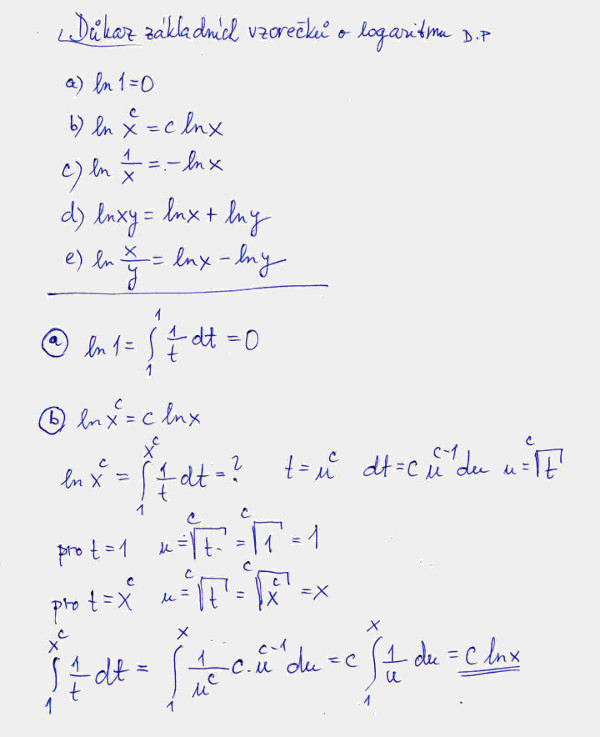 Důkaz základních vzorečků o logaritmu D.P
a) ln 1 = 0
b) ln x^c = c ln x
c) ln 1/x = - ln x
d) ln xy = ln x + ln y
e) ln x/y = ln x - ln y
(a) ln 1 = ∫₁¹ 1/t dt = 0
(b) ln x^c = c ln x
ln x^c = ∫₁^(x^c) 1/t dt = ? t = u^c dt = c u^(c-1) du u = ᶜ√t
pro t = 1 u = ᶜ√t = ᶜ√1 = 1
pro t = x^c u = ᶜ√t = ᶜ√(x^c) = x
∫₁^(x^c) 1/t dt = ∫₁^x 1/u^c c. u^(c-1) du = c ∫₁^x 1/u du = c ln x